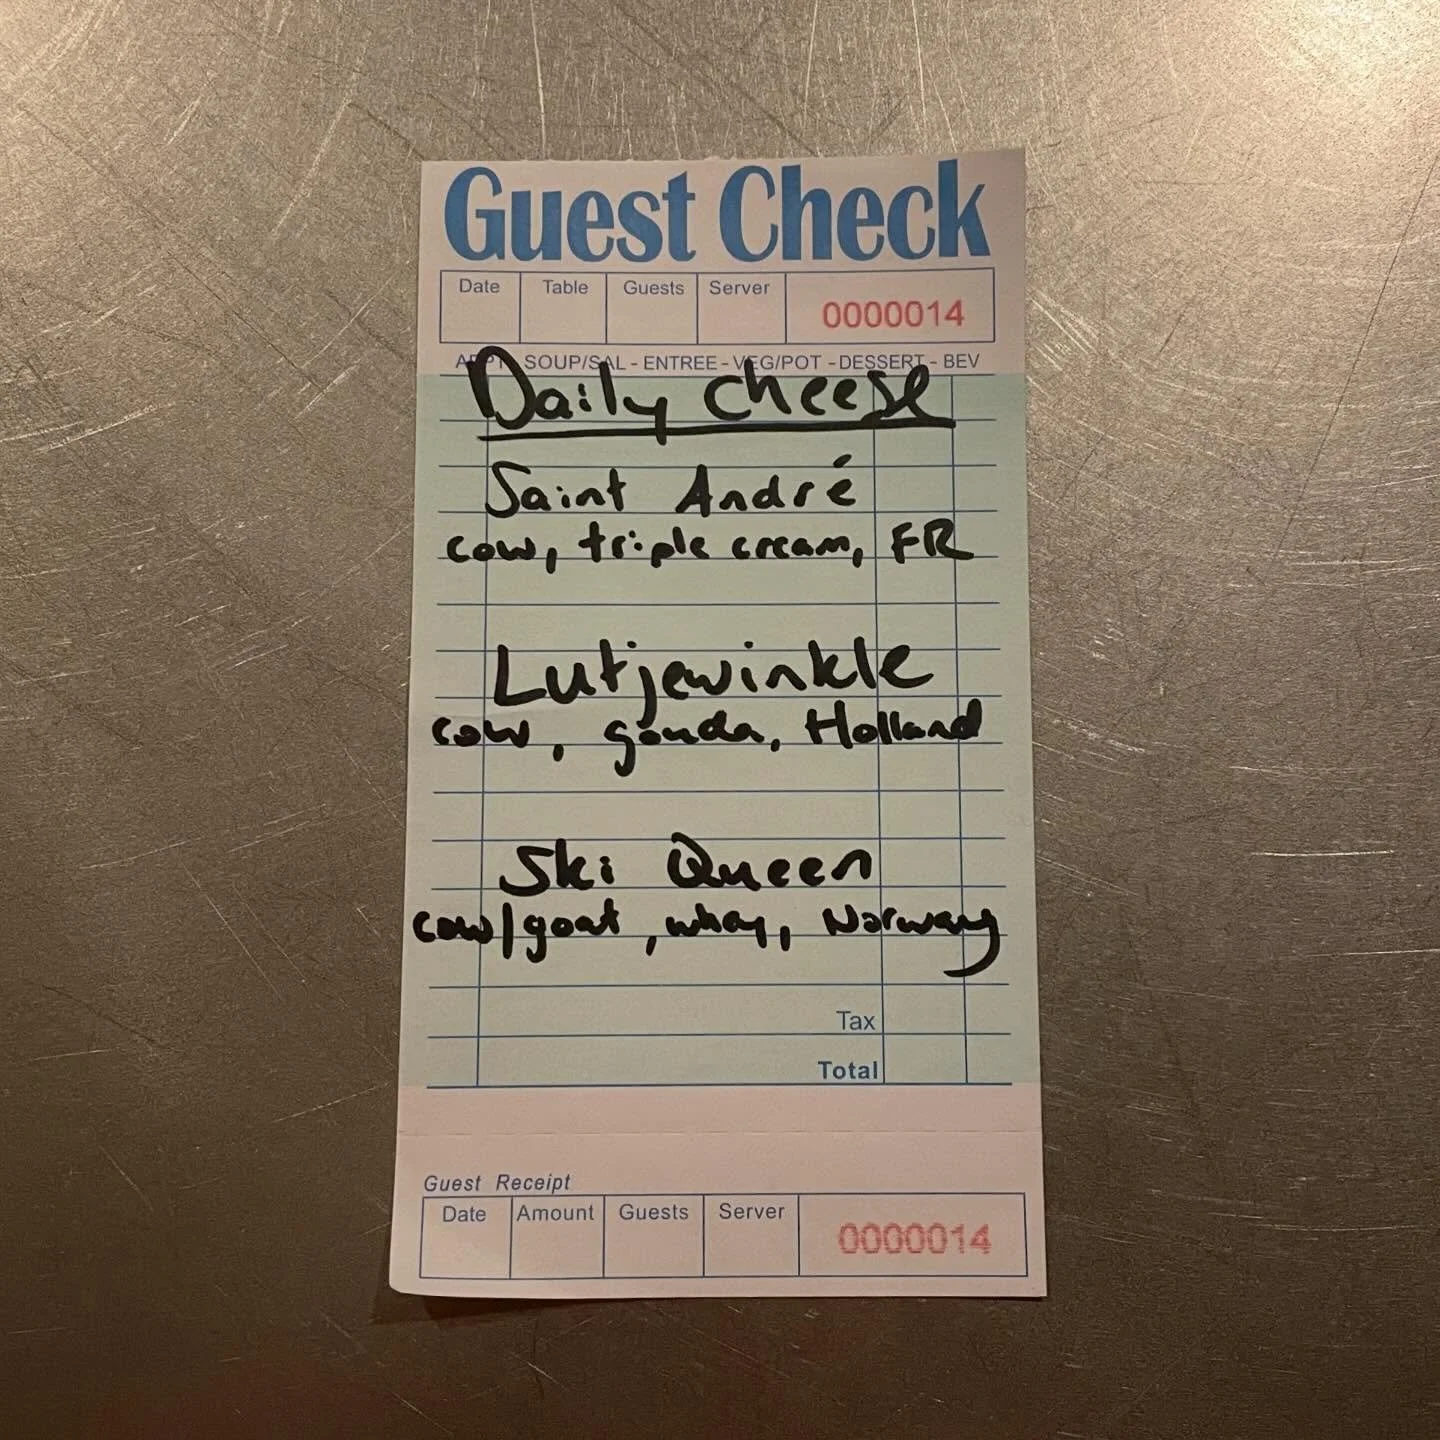 Guest Check
Date Table Guests Server 0000014
APPT - SOUP/SAL - ENTREE - VEG/POT - DESSERT - BEV
Daily cheese
Saint André
cow, triple cream, FR
Lutjewinkle
cow, gouda, Holland
Ski Queen
cow/goat, whey, Norway
Tax
Total
Guest Receipt
Date Amount Guests Server 0000014